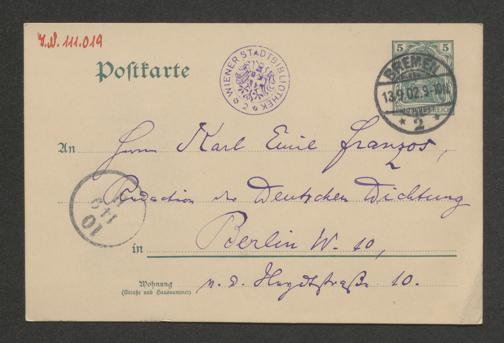 I.N. 111.019
Postkarte
WIENER STADTBIBLIOTHEK
5
BREMEN
13.9.02.9-10
* 2 *
An
Herrn Karl Emil Franzos,
Redaction der Deutschen Dichtung
10
in
Berlin W. 10,
Wohnung
(Straße und Hausnummer)
v. d. Heydtstraße 10.